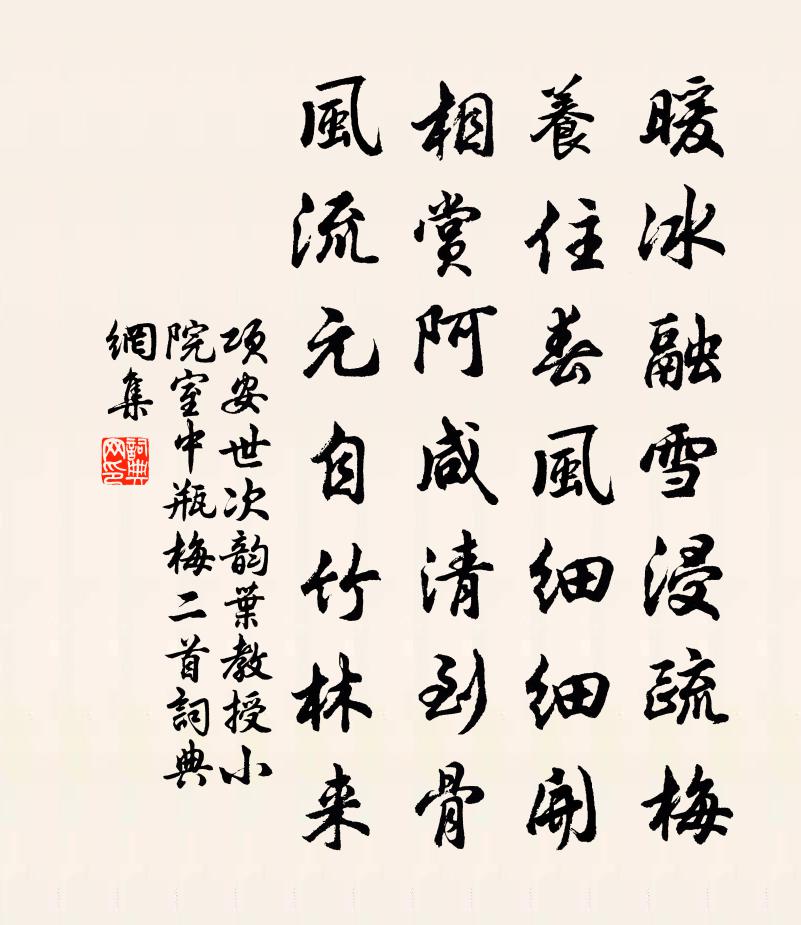 暖冰融雪浸疏梅
養住春風細細開
相賞阿咸清到骨
風流元自竹林来
項安世次韵葉教授小
院室中瓶梅二首詞典
網集
詞典网印